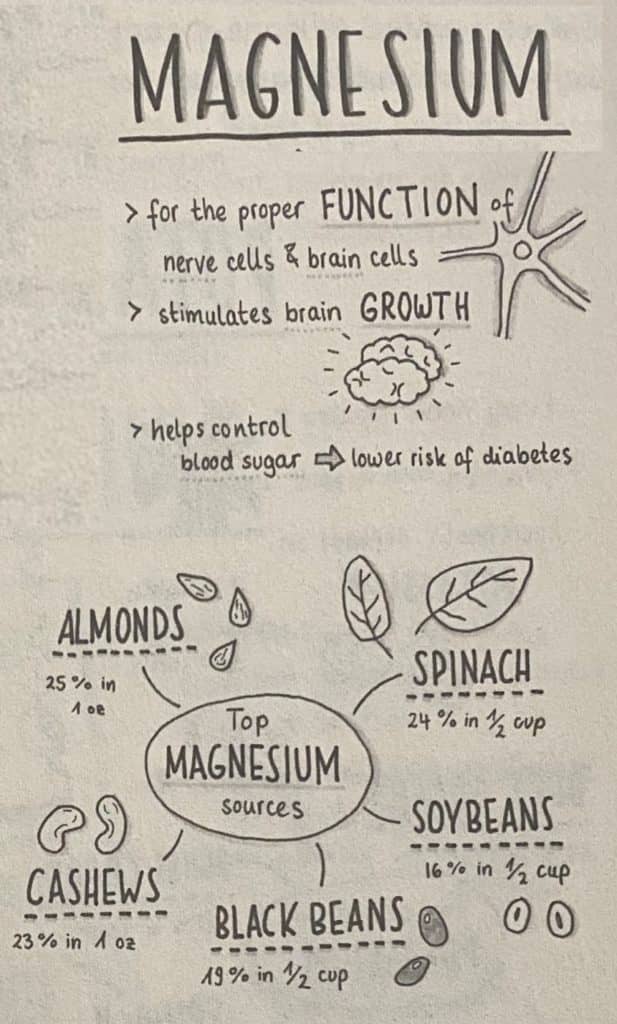 MAGNESIUM
> for the proper FUNCTION of
nerve cells & brain cells
> stimulates brain GROWTH
> helps control
blood sugar ⇨ lower risk of diabetes
ALMONDS
25% in
1 oz
SPINACH
24% in 1/2 cup
Top
MAGNESIUM
sources
SOYBEANS
16% in 1/2 cup
CASHEWS
23% in 1 oz
BLACK BEANS
19% in 1/2 cup